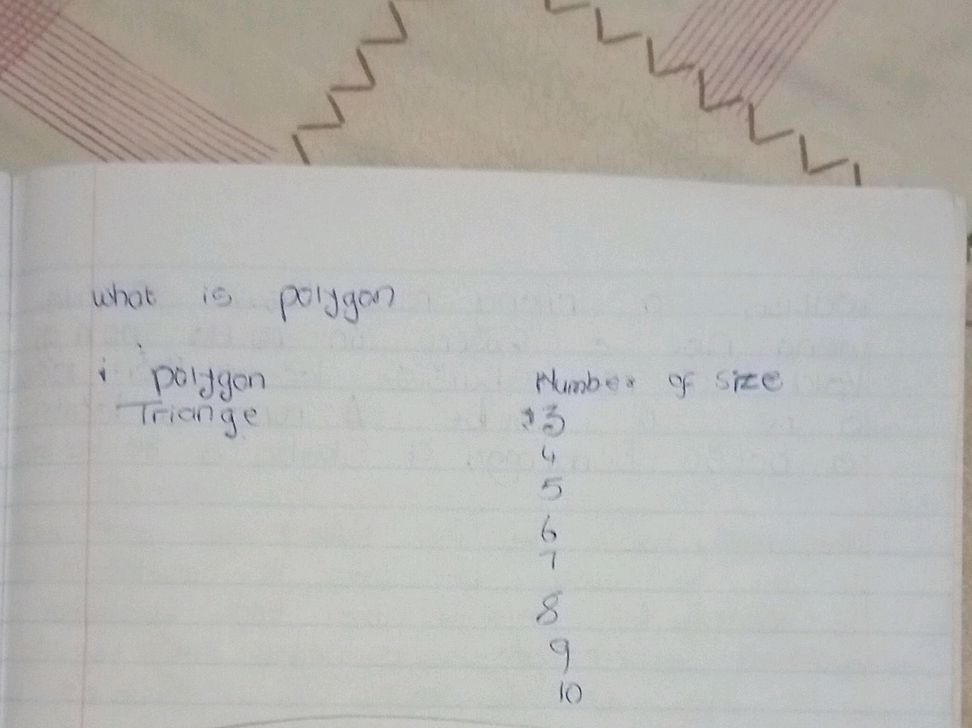 what is polygon
i polygon Number of size
Triange 3
4
5
6
7
8
9
10